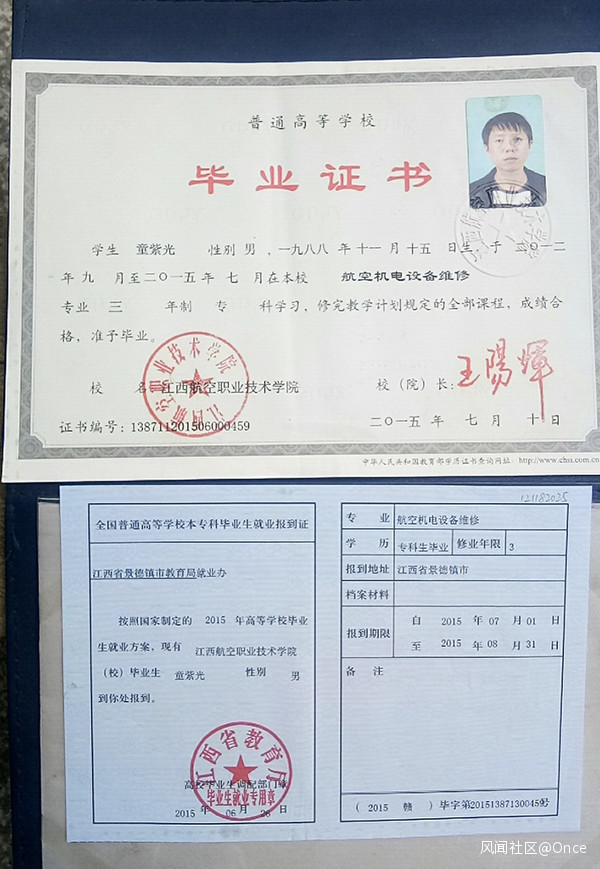 普通高等学校
毕业证书
学生 童紫光 性别 男 ，一九八八 年 十一 月 十五 日生，于 二〇一二
年 九 月至二〇一五年 七 月在本校 航空机电设备维修
专业 三 年制 专 科学习，修完教学计划规定的全部课程，成绩合
格，准予毕业。
校 名：江西航空职业技术学院
校（院）长：王陽輝
二〇一五 年 七 月 十 日
证书编号：138711201506000459
江西航空职业技术学院
中华人民共和国教育部学历证书查询网址：http://www.chsi.com.cn
121182035
全国普通高等学校本专科毕业生就业报到证
江西省景德镇市教育局就业办
按照国家制定的 2015 年高等学校毕业
生就业方案，现有 江西航空职业技术学院
（校）毕业生 童紫光 性别 男
到你处报到。
高校毕业生调配部门章
2015 年 06 月 26 日
江西省教育厅
毕业生就业专用章
专 业 航空机电设备维修
学 历 专科生毕业 修业年限 3
报到地址 江西省景德镇市
档案材料
报到期限 自 2015 年 07 月 01 日
至 2015 年 08 月 31 日
备 注
（ 2015 赣 ）毕字第201513871300459号
风闻社区@Once